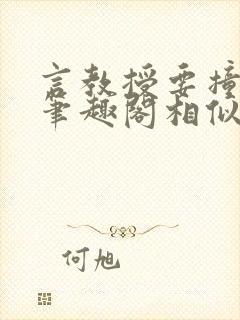 言教授要撞
笔趣阁相似
何旭